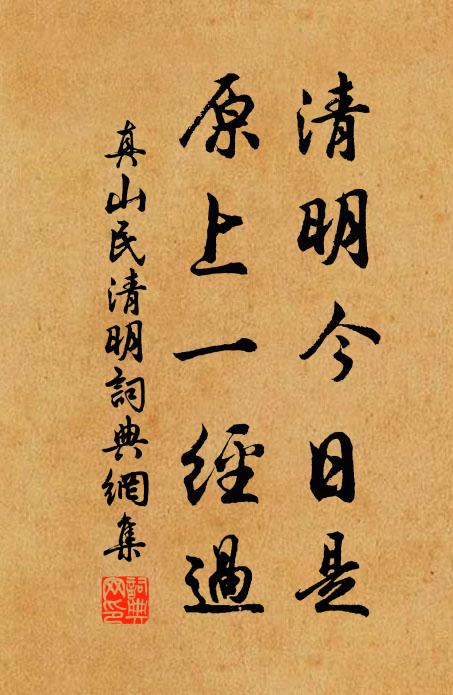 清明今日是
原上一經過
真山民清明詞典網集
詞典網印